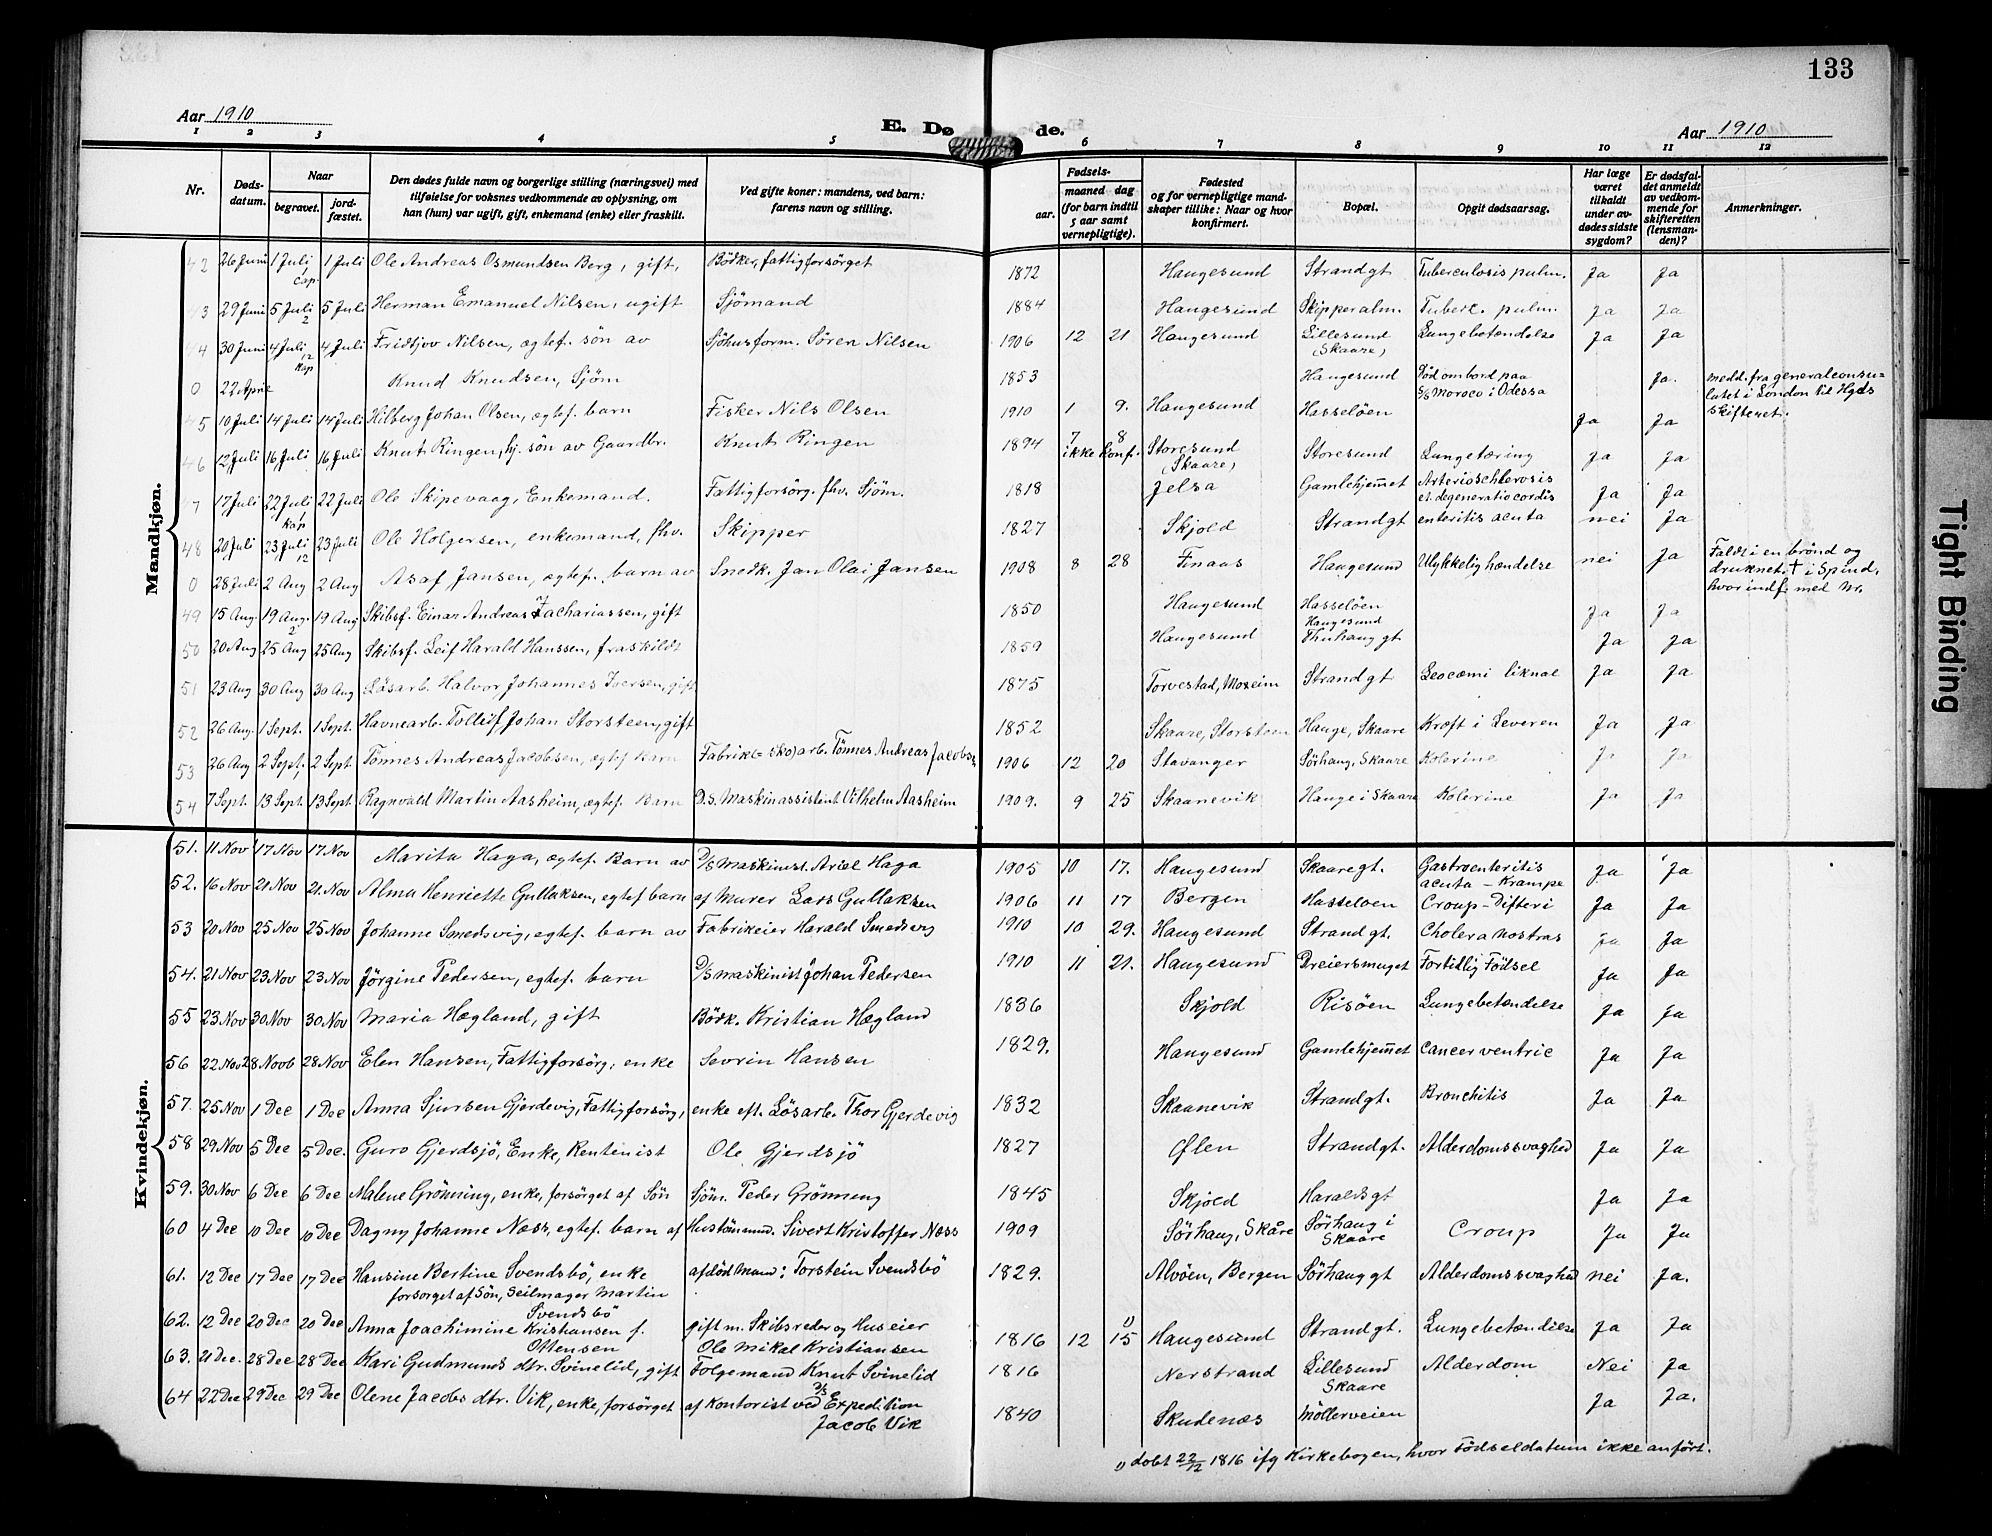 133
Aar 1910
E. Dø de.
Aar 1910
1 2 3 4 5 6 7 8 9 10 11 12
Nr. Døds-datum. Naar begravet. jord-fæstet. Den dødes fulde navn og borgerlige stilling (næringsvei) med tilføielse for voksnes vedkommende av oplysning, om han (hun) var ugift, gift, enkemand (enke) eller fraskilt. Ved gifte koner: mandens, ved barn: farens navn og stilling. Fødsels- aar. maaned dag (for barn indtil 5 aar samt vernepligtige). Fødested og for vernepligtige mand-skaper tillike: Naar og hvor konfirmert. Bopæl. Opgit dødsaarsag. Har læge været tilkaldt under av-dødes sidste sygdom? Er dødsfal-det anmeldt av vedkom-mende for skifteretten (lensman-den)? Anmerkninger.
Mandkjøn.
42 26 Juni 1 Juli 1 Cap. 1 Juli Ole Andreas Osmundsen Berg, gift, Bödker, fattigforsörget 1872 Haugesund Strandgt Tuberculosis pulm. Ja Ja
43 29 Juni 5 Juli 2 5 Juli Herman Emanuel Nilsen, ugift Sjömand 1884 Haugesund Skipperalm. Tuberc. pulm. Ja Ja
44 30 Juni 4 Juli 12 Kap 4 Juli Fridtjov Nilsen, egtef. søn av Sjöhusform. Sören Nilsen 1906 12 21 Haugesund Lillesund (Skaare) Lungebetændelse Ja Ja
0 22 April Knud Knudsen, Sjöm 1853 Haugesund Död ombord paa S/S Moroco i Odessa Ja. medd. fra generalconsu-lutet i London til Hgds skifteret.
45 10 Juli 14 Juli 14 Juli Hilberg Johan Olsen, egtef. barn Fisker Nils Olsen 1910 1 9. Haugesund Hasselöen Ja Ja
46 12 Juli 16 Juli 16 Juli Knut Ringen, hj. sön av Gaardbr. Knut Ringen 1894 7 8 ikke Konf. Storesund (Skaare) Storesund Lungetæring Ja Ja
47 17 Juli 22 Juli 1 Kap 22 Juli Ole Skipevaag, Enkemand. Fattigforsörg. fhv. Sjöm. 1818 Jelsa Gamlehjemet Arterioschlerosis et degeneratio cordis Ja Ja
48 20 Juli 23 Juli 12 23 Juli Ole Holgersen, enkemand, fhv. Skipper 1827 Skjold Strandgt enteritis acuta nei Ja
0 28 Juli 2 Aug 2 Aug Asaf Jansen, egtef. barn av Snedk. Jan Olai Jansen 1908 8 28 Finaas Haugesund Ulykkelig hændelse nei Ja Faldt i en brönd og druknet. † i Spind, hvor indf. med Nr.
49 15 Aug. 19 Aug. 2 19 Aug Skibsf. Einar Andreas Zachariassen, gift 1850 Haugesund Hasselöen Haugesund Ja Ja
50 20 Aug 25 Aug 25 Aug Skibsf. Leif Harald Hanssen, fraskildt 1859 Haugesund Thuhaug gt Ja Ja
51 23 Aug 30 Aug 30 Aug Lösarb. Halvor Johannes Iversen, gift 1875 Torvestad, Moxeim Strandgt Leocæmi liknal Ja Ja
52 26 Aug. 1 Sept. 1 Sept. Havnearb. Tollëif Johan Storsteen, gift 1852 Skaare, Storstom Hauge, Skaare Kræft i Leveren Ja Ja
53 26 Aug 2 Sept. 2 Sept. Tönnes Andreas Jacobsen, egtef Barn Fabrik(=Sko)arb. Tönnes Andreas Jacobsn 1906 12 20 Stavanger Sörhaug, Skaare Kolerine Ja Ja
54 7 Sept. 13 Sept. 13 Sept. Ragnvald Martin Aasheim, egtef. Barn D.S. Maskinassistent Vilhelm Aasheim 1909. 9 25 Skaanevik Hauge i Skaare Kolerine Ja Ja
Kvindekjøn.
51. 11 Nov 17 Nov 17 Nov Marita Haga, egtef. Barn av D/S Maskinist Ariel Haga 1905 10 17. Haugesund Skaaregt. Gastroenteritis acuta – Krampe Ja Ja
52. 16 Nov 21 Nov 21. Nov Alma Henriette Gullaksen, egtef barn af Murer Lars Gullaksen 1906 11 17 Bergen Hasseloen Croup – Difteri Ja Ja
53 20 Nov 25 Nov 25 Nov Johanne Smedsvig, egtef. barn av Fabrikeier Harald Smedsvig 1910 10 29. Haugesund Strandgt. Cholera nostras Ja Ja
54. 21 Nov 23 Nov 23 Nov Jörgine Pedersen, egtef. barn D/S maskinist Johan Pedersen 1910 11 21. Haugesund Dreiersmuget Fortidlig Födsel Ja Ja
55 23 Nov 30 Nov 30 Nov Maria Hægland, gift Bödk. Kristian Hægland 1836 Skjold Risöen Lungebetændelse Ja Ja
56 22 Nov 28 Novb 28 Nov Elen Hansen, Fattigforsörg, enke Sevrin Hansen 1829. Haugesund Gamlehjemet Cancer ventric Ja Ja
57. 25 Nov 1 Dec 1 Dec Anna Sjursen Gjerdevig, Fattigforsörg, enke eft. Lösarb. Thor Gjerdevig 1832 Skaanevik Strandgt. Bronchitis Ja Ja
58 29 Nov 5 Dec 5 Dec. Guro Gjerdsjö, Enke, Rentenist Ole Gjerdsjö 1827 Ölen Strandgt. Alderdomssvaghed Ja Ja
59. 30 Nov 6 Dec 6 Dec Malene Grönning, enke, forsörget af Sön Sjöm. Peder Grönning 1845 Skjold Haraldsgt Ja Ja
60 4 Dec 10 Dec 10 Dec Dagny Johanne Næss, egtef. barn af Hustömmd. Sivert Kristoffer Næss 1909 Sörhaug, Skåre Sörhaug i Skaare Croup Ja Ja
61. 12 Dec 17 Dec 17 Dec Hansine Bertine Svendsbö, enke forsorget af Sön, Seilmager Martin Svendsbö afdöd Mand: Torstein Svendsbö 1829. Alvöen, Bergen Sörhauggt Alderdomssvaghed nei Ja.
62. 12 Dec 20 Dec 20 Dec Anna Joachimine Kristiansen f. Ottensen gift m. Skibsreder og Huseier Ole Mikal Kristiansen 1816 12 1) 15 Haugesund Strandgt. Lungebetændelse Ja Ja
63. 21 Dec. 28 Dec 28 Dec Kari Gudmunds dtr. Svinelid, gift Folgemand Knut Svinelid 1816 Nerstrand Lillesund Skaare Alderdom Nei Ja
64 22 Dec 29 Dec 29 Dec Olene Jacobs dtr. Vik, enke, forsörget af Kontorist ved D/S Expedition Jacob Vik 1840 Skudenæs Möllerveien Ja Ja.
1) dobt 22/12 1816 ifg Kirkebogen, hvor Födseldatum ikke anfört.
Tight Binding